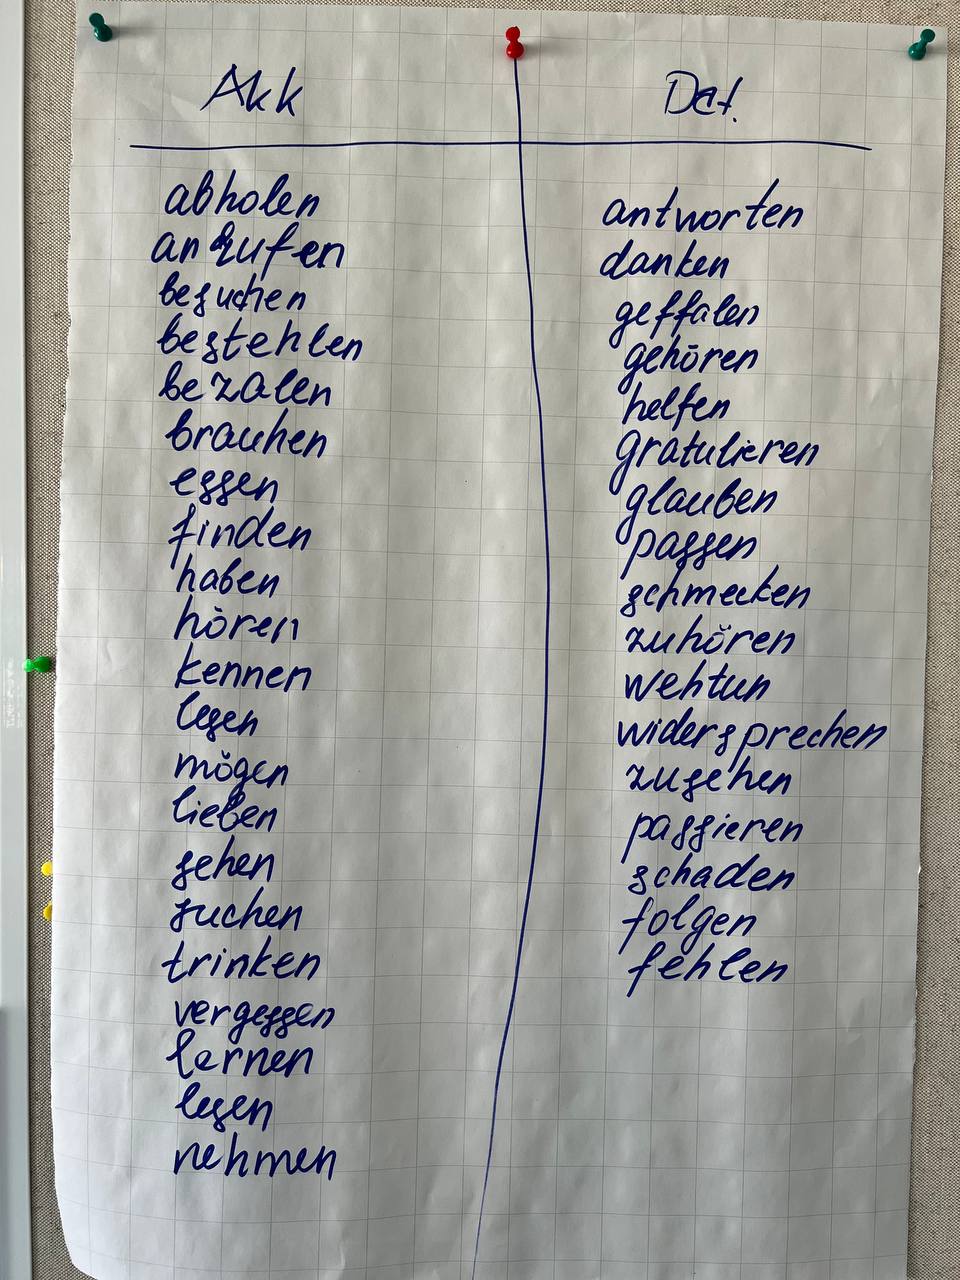 Akk
abholen
anrufen
besuchen
bestehlen
bezalen
brauhen
essen
finden
haben
hören
kennen
lesen
mögen
lieben
sehen
suchen
trinken
vergessen
lernen
lesen
nehmen
Dat.
antworten
danken
geffalen
gehören
helfen
gratulieren
glauben
passen
schmecken
zuhören
wehtun
widersprechen
zusehen
passieren
schaden
folgen
fehlen